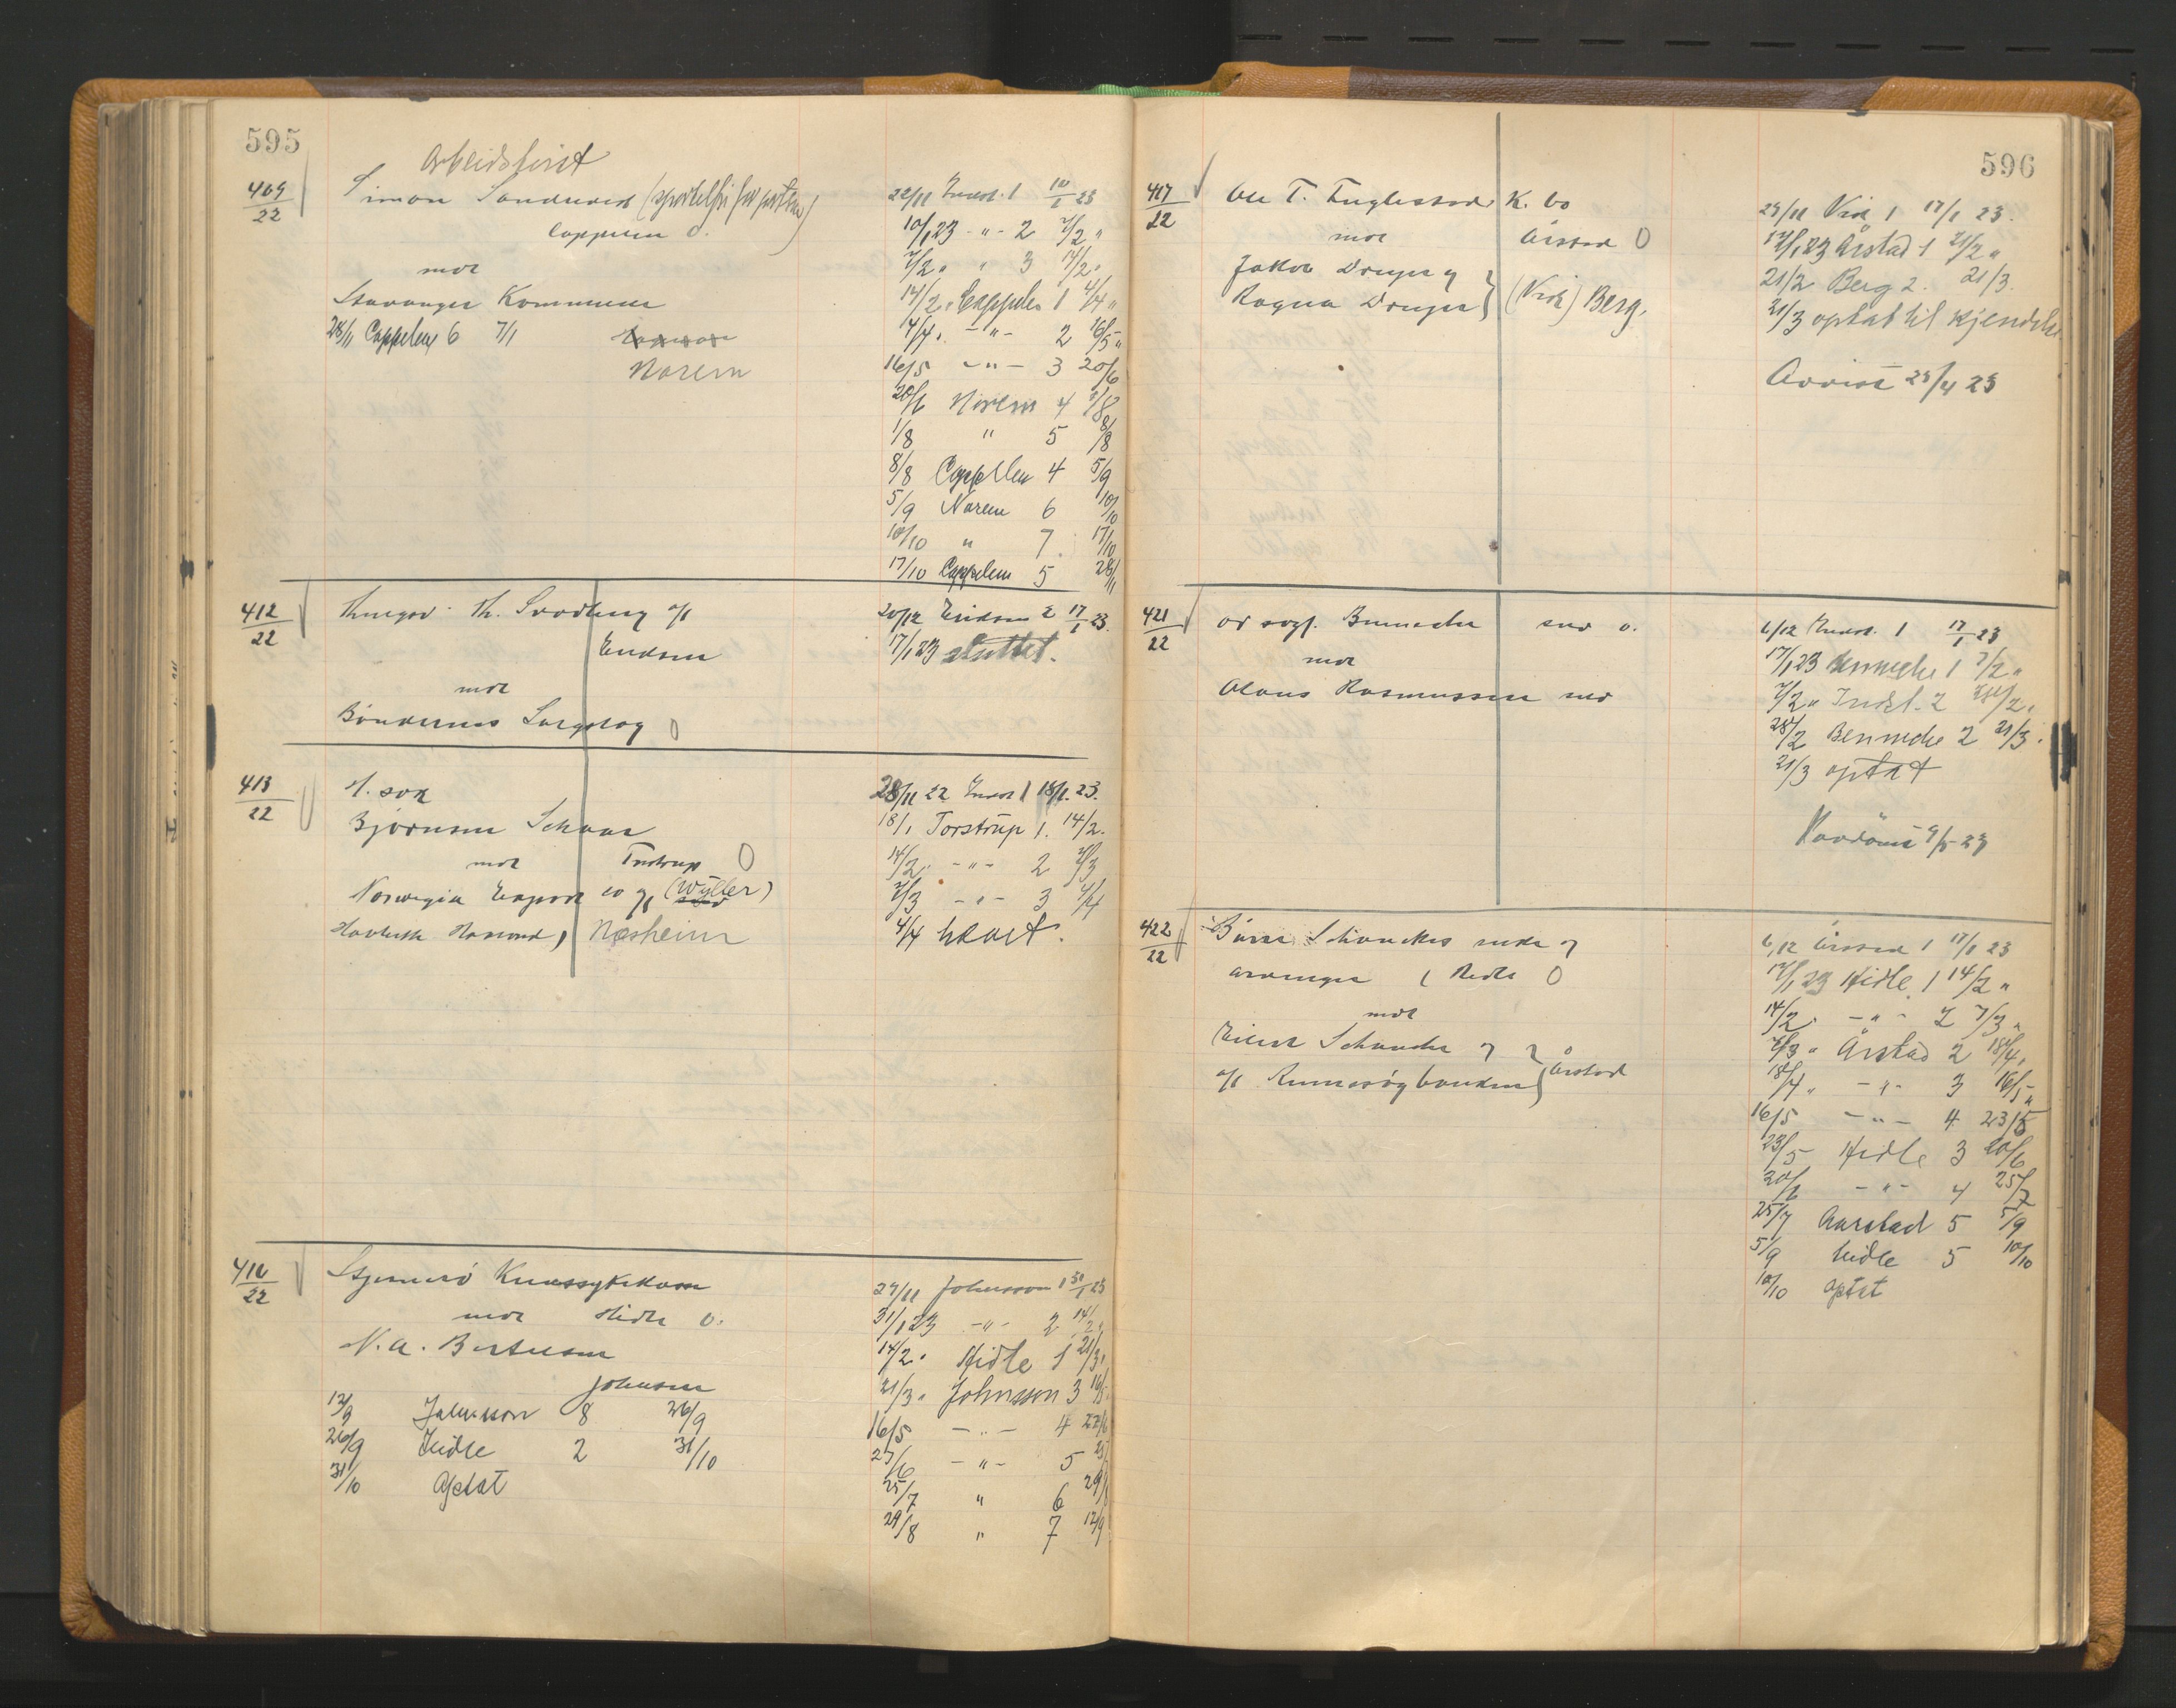 595
Arbeidstvist
409/22 Simon Sandved (sportelfri for
Cappelen O.
mot
Stavanger Kommune
28/11 Cappelen 6 7/1
Norem
22/11 Indst. 1 10/1 23
10/1 23 -"- 2 7/2 "
7/2 " " 3 14/2 "
14/2 " Cappelen 1 4/4 "
4/4 " -"- 2 16/5 "
16/5 -"- 3 20/6
20/6 Norem 4 1/8
1/8 " 5 8/8
8/8 Cappelen 4 5/9
5/9 Norem 6 10/10
10/10 " 7 17/10
17/10 Cappelen 5 28/11
412/22 Th.
Endsen
mot
Bøndernes Salgslag O
20/12 Endsen 2 17/1 23.
17/1 23 sluttet.
413/22 H. sak
Bjørnsen Schaar
mot Torstrup O
Norwegian Export co (Wyller)
Næsheim
28/11 22 Indst 1 18/1. 23.
18/1 Torstrup 1. 14/2.
14/2. -"- 2 7/3
7/3 -"- 3 4/4
4/4 hævet.
416/22 Stjernerø Kredssykekasse
mot Hidle O.
N. A. Bertelsen
Johnsen
12/9 Johnsson 8 26/9
26/9 Hidle 2 31/10
31/10 Optat
27/11 Johnsson 1 31/1 23
31/1 23 -"- 2 14/2 "
14/2 " Hidle 1 21/3 "
21/3 " Johnsson 3 16/5
16/5 -"- 4 27/6
27/6 -"- 5 25/7
25/7 " 6 29/8
29/8 " 7 12/9
596
417/22 Ole T. Fuglestad K. bo
mot Årstad O
Jakob Dreyer og
Ragna Dreyer } (Vik) Berg.
29/11 Vik 1 17/1 23.
17/1 23 Årstad 1 21/2 "
21/2 Berg 2. 21/3.
21/3 optat til kjendelse
Avvist 25/4 23
421/22 or sagf. Bennecke selv O.
mot
Olaus Rasmussen selv
6/12 Indst. 1 17/1 23
17/1 23 Bennecke 1 7/2 "
7/2 " Indst. 2 28/2 "
28/2 Bennecke 2 21/3.
21/3 optat
9/5 23
422/22 Børre Schanckes enke og
arvinger ( Hidle O
mot
Eilert Schancke og
Rennesøybanken } Årstad
6/12 Årstad 1 17/1 23
17/1 23 Hidle 1 14/2 "
14/2. -"- 2 7/3 "
7/3 " Årstad 2 18/4 "
18/4 " -"- 3 16/5 "
16/5 -"- 4 23/5
23/5 Hidle 3 20/6
20/6 -"- 4 25/7
25/7 Aarstad 5 5/9
5/9 Hidle 5 10/10
10/10 Optat